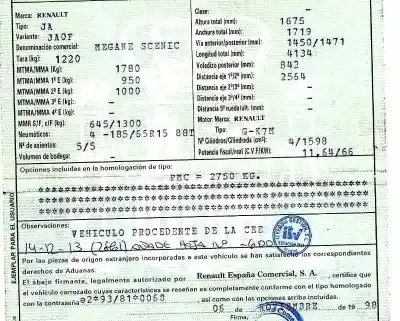 Marca: RENAULT
Tipo: JA
Variante: JAOF
Denominación comercial: MEGANE SCENIC
Tara (kg): 1220
MTMA/MMA (kg): 1780
MTMA/MMA 1º E (kg): 950
MTMA/MMA 2º E (kg): 1000
MTMA/MMA 3º E (kg): —
MTMA/MMA 4º E (kg): —
MMR S/F, c/F (kg): 645/1300
Neumáticos: 4 -185/65R15 88T
Nº de asientos: 5/5
Volumen de bodega: —
Clase: —
Altura total (mm): 1675
Anchura total (mm): 1719
Vía anterior/posterior (mm): 1450/1471
Longitud total (mm): 4134
Voladizo posterior (mm): 842
Distancia eje 1º/2º (mm): 2564
Distancia eje 2º/3º (mm): —
Distancia eje 3º/4º (mm): —
Distancia 5ª rueda/últ. (mm): —
Motor: Marca: RENAULT
Tipo: G-K7M
Nº Cilindros/Cilindrada (cm³): 4/1598
Potencia fiscal/real (C.V.F/KW): 11,64/66
Opciones incluidas en la homologación de tipo:
PMC = 2750 KG.
EJEMPLAR PARA EL USUARIO
Observaciones:
VEHICULO PROCEDENTE DE LA CEE
14-12-13
ITV
Por las piezas de origen extranjero incorporadas a este vehículo se han satisfecho los correspondientes
derechos de Aduanas.
El abajo firmante, legalmente autorizado por Renault España Comercial, S. A., certifica que
el vehículo carrozado cuyas características se reseñan es completamente conforme con el tipo homologado
con la contraseña 92*93/81*0068, así como con las opciones arriba incluidas.
06 de NOVIEMBRE de 1998
Firma,